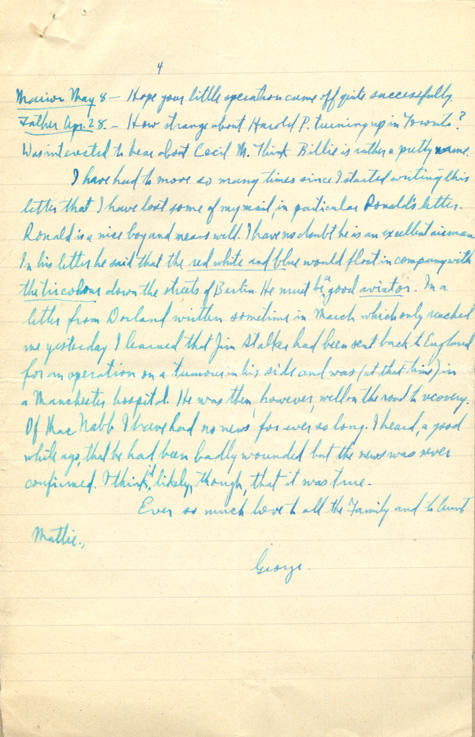 4
Marion May 8 – Hope your little operation came off quite successfully.
Father Apr. 28. – How strange about Harold P. turning up in Toronto?
Was interested to hear about Cecil M. Think Billie is rather a pretty name.
I have had to move so many times since I started writing this
letter that I have lost some of my mail, in particular Ronald's letter.
Ronald is a nice boy and means well. I have no doubt he is an excellent airman.
In his letter he said that the red white and blue would float in company with
the tricolour down the streets of Berlin. He must be a good aviator. In a
letter from Dorland written sometime in March which only reached
me yesterday I learned that Jim Stalker had been sent back to England
for an operation on a tumour in his side and was (at that time) in
a Manchester hospital. He was then, however, well on the road to recovery.
Of Mac Nabb I have had no news for ever so long. I heard, a good
while ago, that he had been badly wounded but the news was never
confirmed. I think it likely, though, that it was true.
Ever so much love to all the Family and to Aunt
Mattie.,
George.